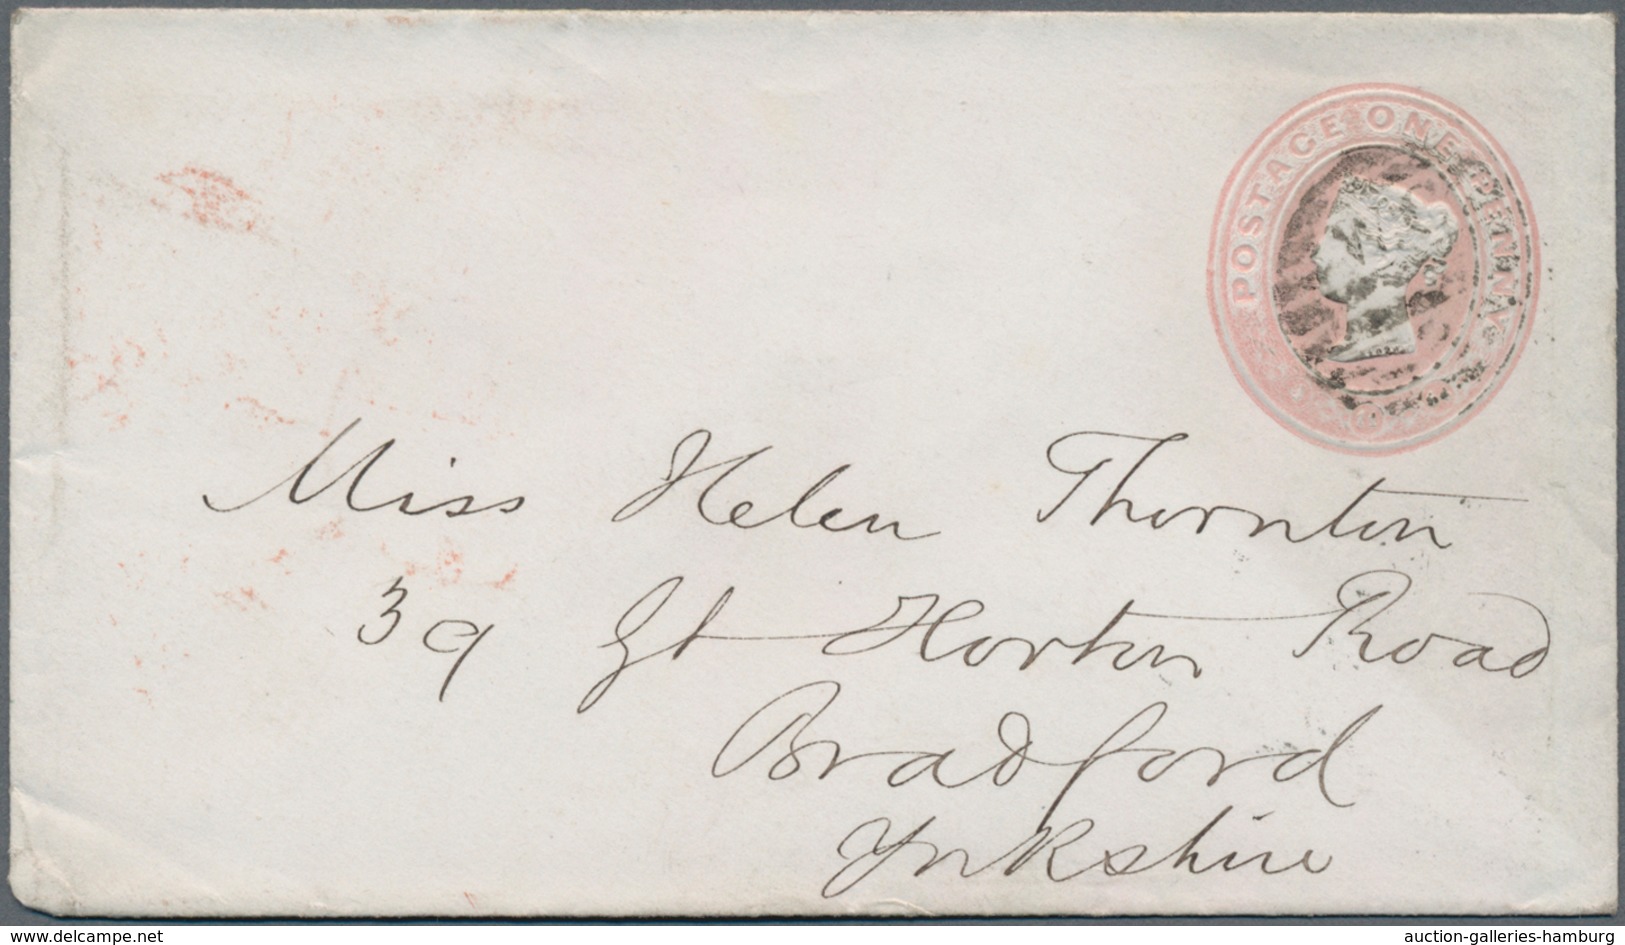 POSTAGE ONE PENNY
Miss Helen Thornton
39 Gt Horton Road
Bradford
Yorkshire
www.delcampe.net
auction-galleries-hamburg